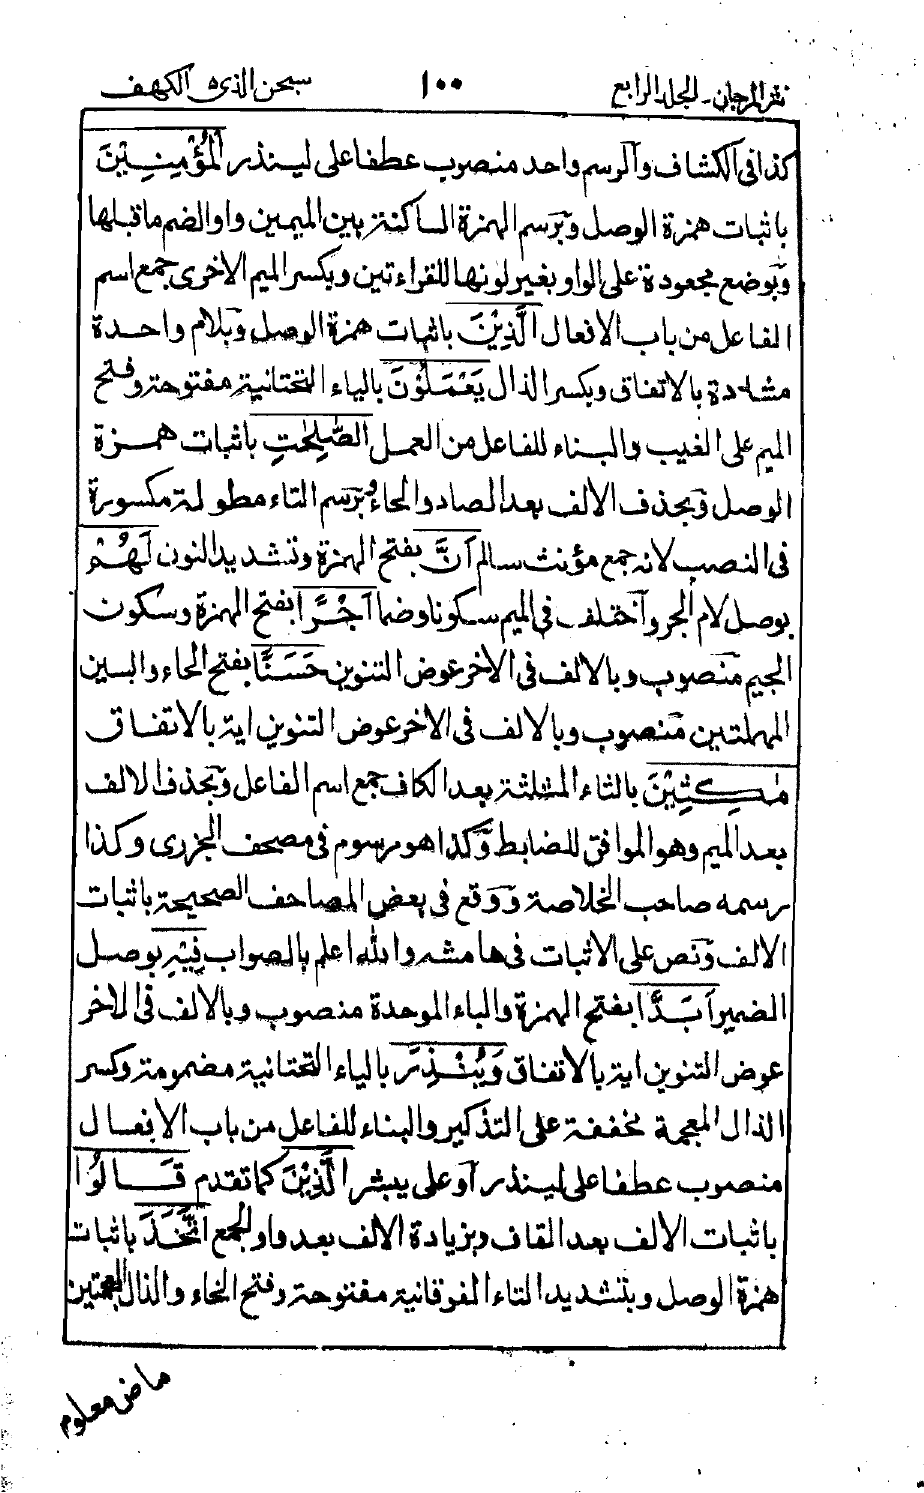 نثر المرجان ـ الجلد الرابع ١٠٠ سبحن الذى ه الكهف
كذا فى الكشاف والرسم واحد منصوب عطفا على لينذر الْمُؤْمِنِيْنَ
باثبات همزة الوصل وبرسم الهمزة الساكنة بين الميمين واوا لضم ما قبلها
وبوضع مجعودة على الواو بغير لونها للقراءتين وبكسر الميم الاخرى جمع اسم
الفاعل من باب الافعال الَّذِيْنَ باثبات همزة الوصل وبلام واحدة
مشددة بالاتفاق وبكسر الذال يَعْمَلُوْنَ بالياء التحتانية مفتوحة وفتح
الميم على الغيب والبناء للفاعل من العمل الصّٰلِحٰتِ باثبات همزة
الوصل وبحذف الالف بعد الصاد والحاء وبرسم التاء مطولة مكسورة
فى النصب لانه جمع مؤنث سالم اَنَّ بفتح الهمزة وتشديد النون لَهُمْ
بوصل لام الجر واختلف فى الميم سكونا وضما اَجْرًا بفتح الهمزة وسكون
الجيم منصوب وبالالف فى الاخر عوض التنوين حَسَنًا بفتح الحاء والسين
المهملتين منصوب وبالالف فى الاخر عوض التنوين اية بالاتفاق
مٰكِثِيْنَ بالثاء المثلثة بعد الكاف جمع اسم الفاعل وبحذف الالف
بعد الميم وهو الموافق للضابط وكذا هو مرسوم فى مصحف الجزرى وكذا
رسمه صاحب الخلاصة ووقع فى بعض المصاحف الصحيحة باثبات
الالف ونص على الاثبات فى هامشه والله اعلم بالصواب فِيْهِ بوصل
الضمير اَبَدًا بفتح الهمزة والباء الموحدة منصوب وبالالف فى الاخر
عوض التنوين اية بالاتفاق وَيُنْذِرَ بالياء التحتانية مضمومة وكسر
الذال المعجمة مخففة على التذكير والبناء للفاعل من باب الافعال
منصوب عطفا على لينذر او على يبشر الَّذِيْنَ كما تقدم قَالُوا
باثبات الالف بعد القاف وبزيادة الالف بعد واو الجمع اتَّخَذَ باثبات
همزة الوصل وبتشديد التاء الفوقانية مفتوحة وفتح الخاء والذال المعجمتين
ماض معلوم